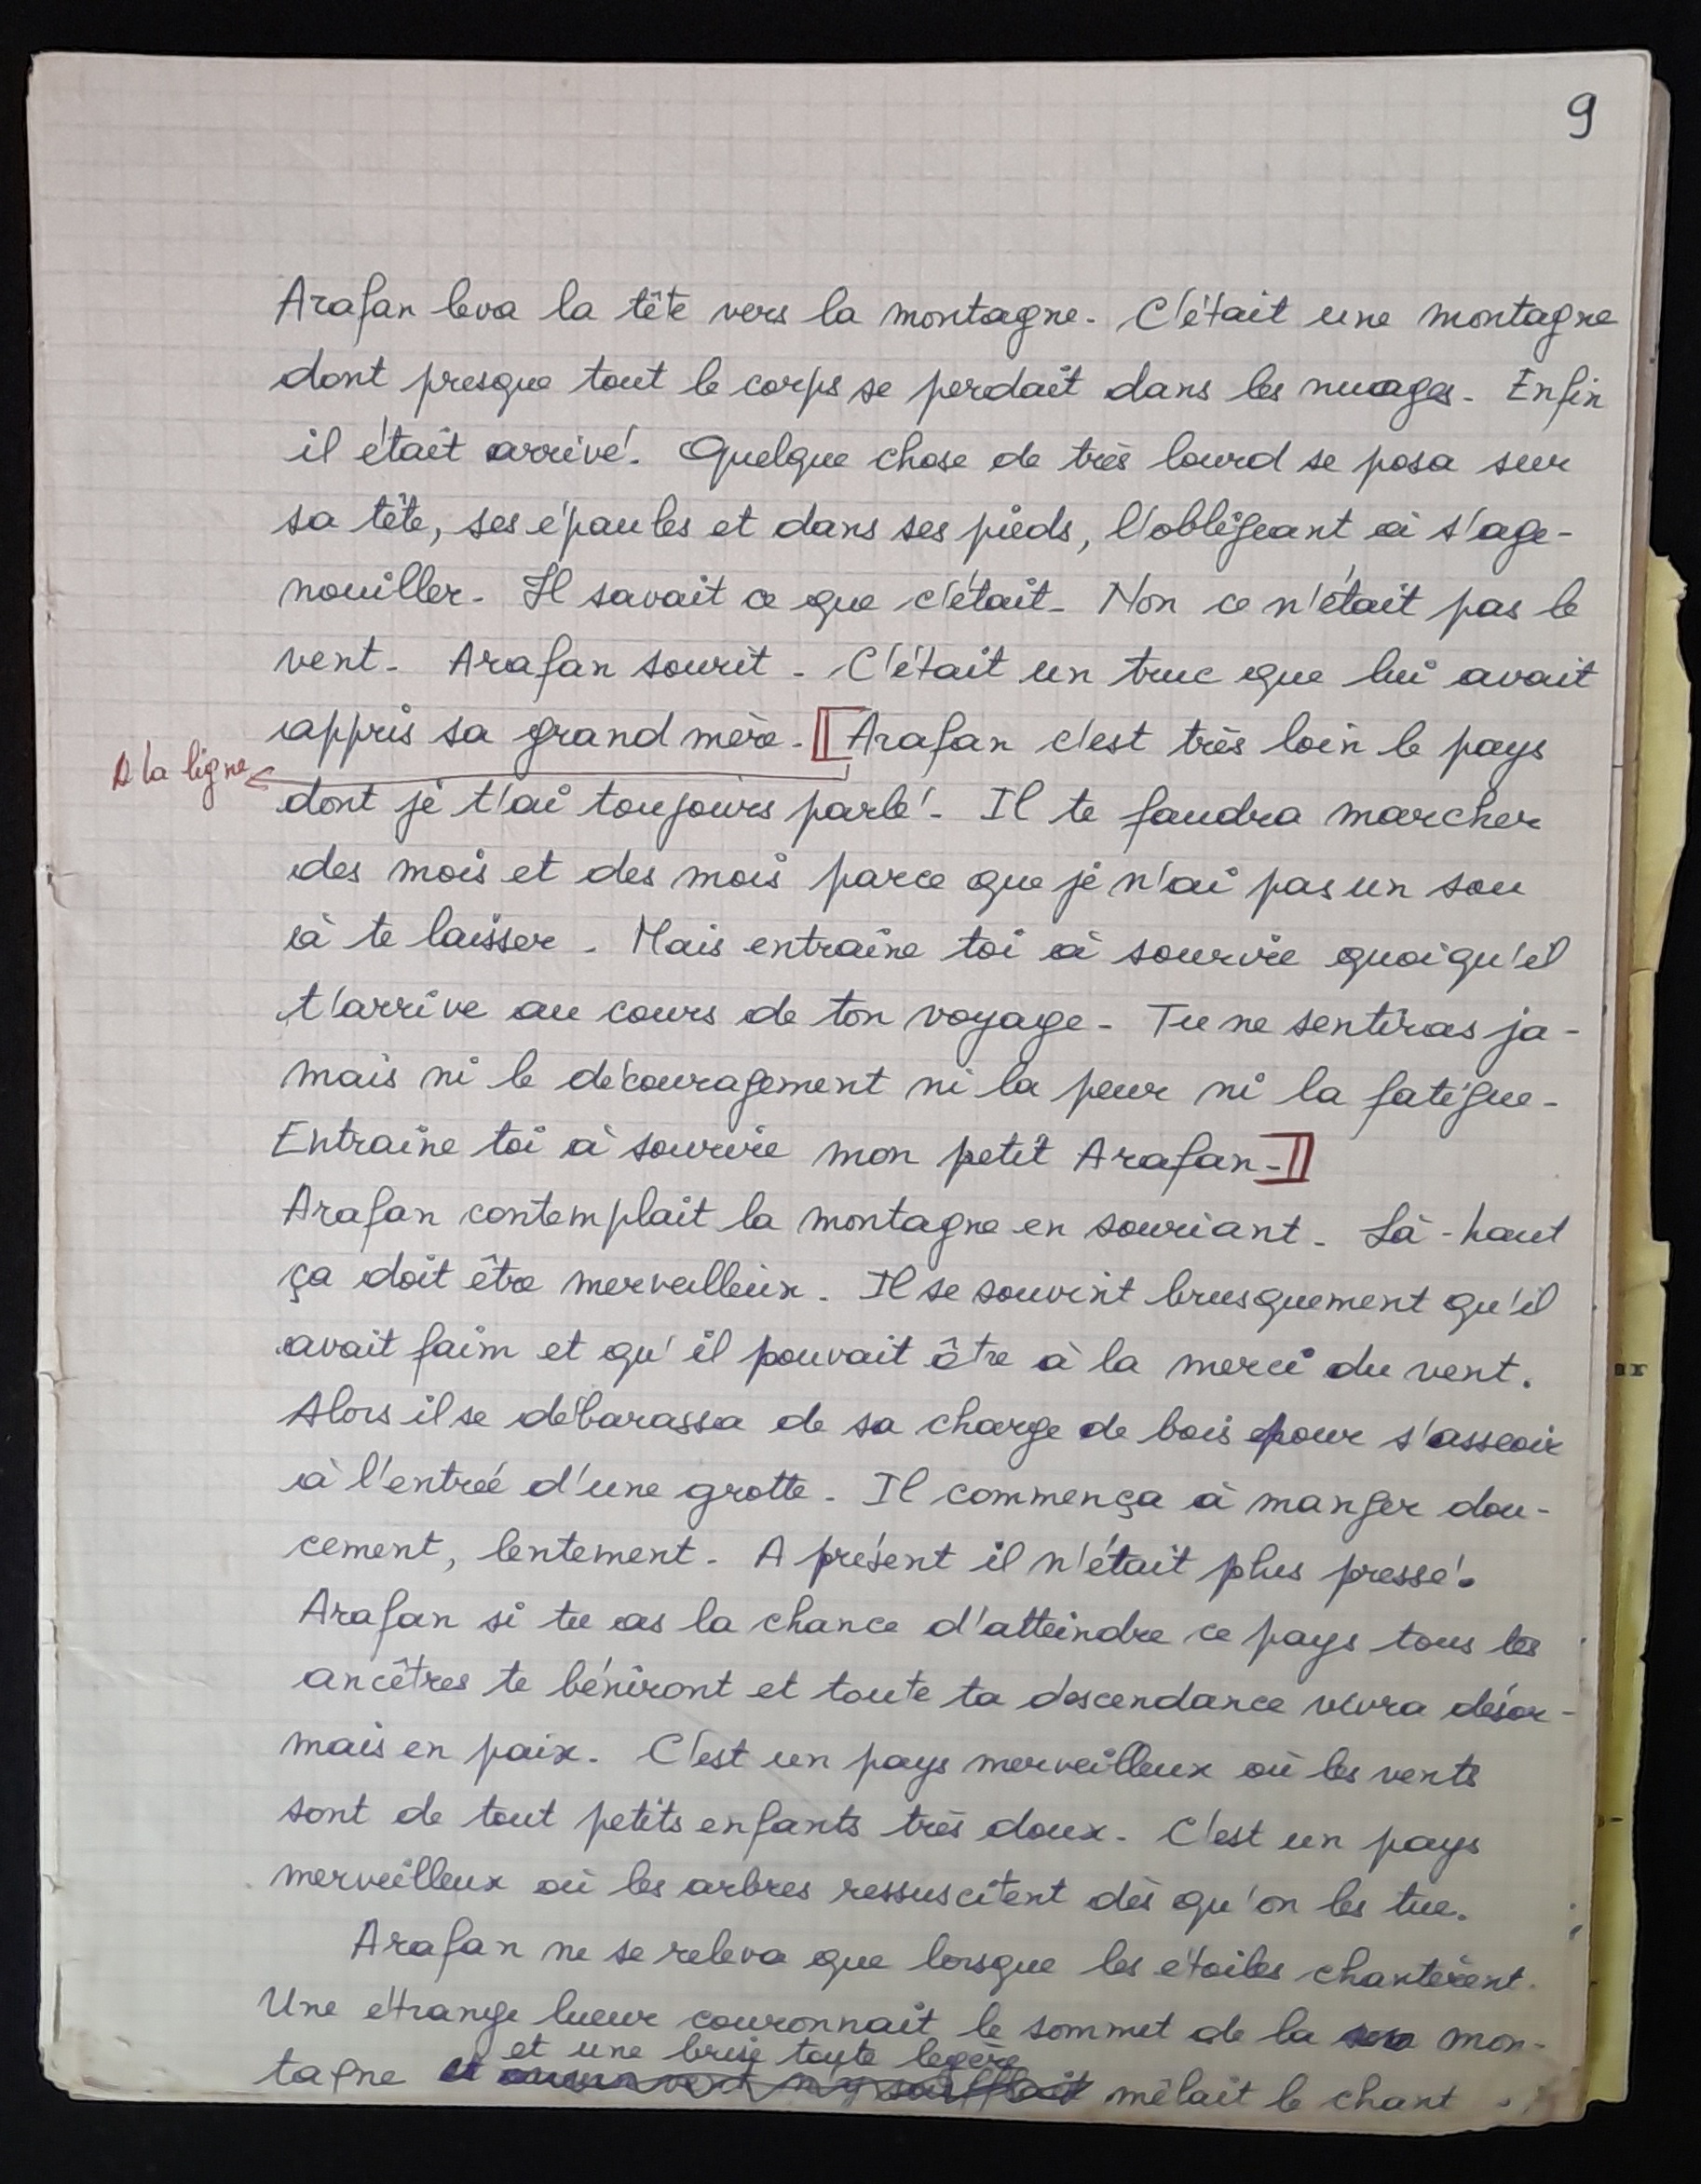 9
Arafan leva la tête vers la montagne. C'était une montagne
dont presque tout le corps se perdait dans les nuages. Enfin
il était arrivé. Quelque chose de très lourd se posa sur
sa tête, ses épaules et dans ses pieds, l'obligeant à s'age-
nouiller. Il savait ce que c'était. Non ce n'était pas le
vent. Arafan sourit. C'était un truc que lui avait
appris sa grand mère. [Arafan c'est très loin le pays
A la ligne
dont je t'ai toujours parlé. Il te faudra marcher
des mois et des mois parce que je n'ai pas un sou
à te laisser. Mais entraîne toi à sourire quoiqu'il
t'arrive au cours de ton voyage. Tu ne sentiras ja-
mais ni le découragement ni la peur ni la fatigue.
Entraîne toi à sourire mon petit Arafan.]
Arafan contemplait la montagne en souriant. Là-haut
ça doit être merveilleux. Il se souvint brusquement qu'il
avait faim et qu'il pouvait être à la merci du vent.
Alors il se débarassa de sa charge de bois pour s'asseoir
à l'entrée d'une grotte. Il commença à manger dou-
cement, lentement. A présent il n'était plus pressé.
Arafan si tu as la chance d'atteindre ce pays tous les
ancêtres te béniront et toute ta descendance vivra désor-
mais en paix. C'est un pays merveilleux où les vents
sont de tout petits enfants très doux. C'est un pays
merveilleux où les arbres ressuscitent dès qu'on les tue.
Arafan ne se releva que lorsque les étoiles chantèrent.
Une étrange lueur couronnait le sommet de la mon-
et une brise toute legère
tagne et aucun vent n'y soufflait mêlait le chant